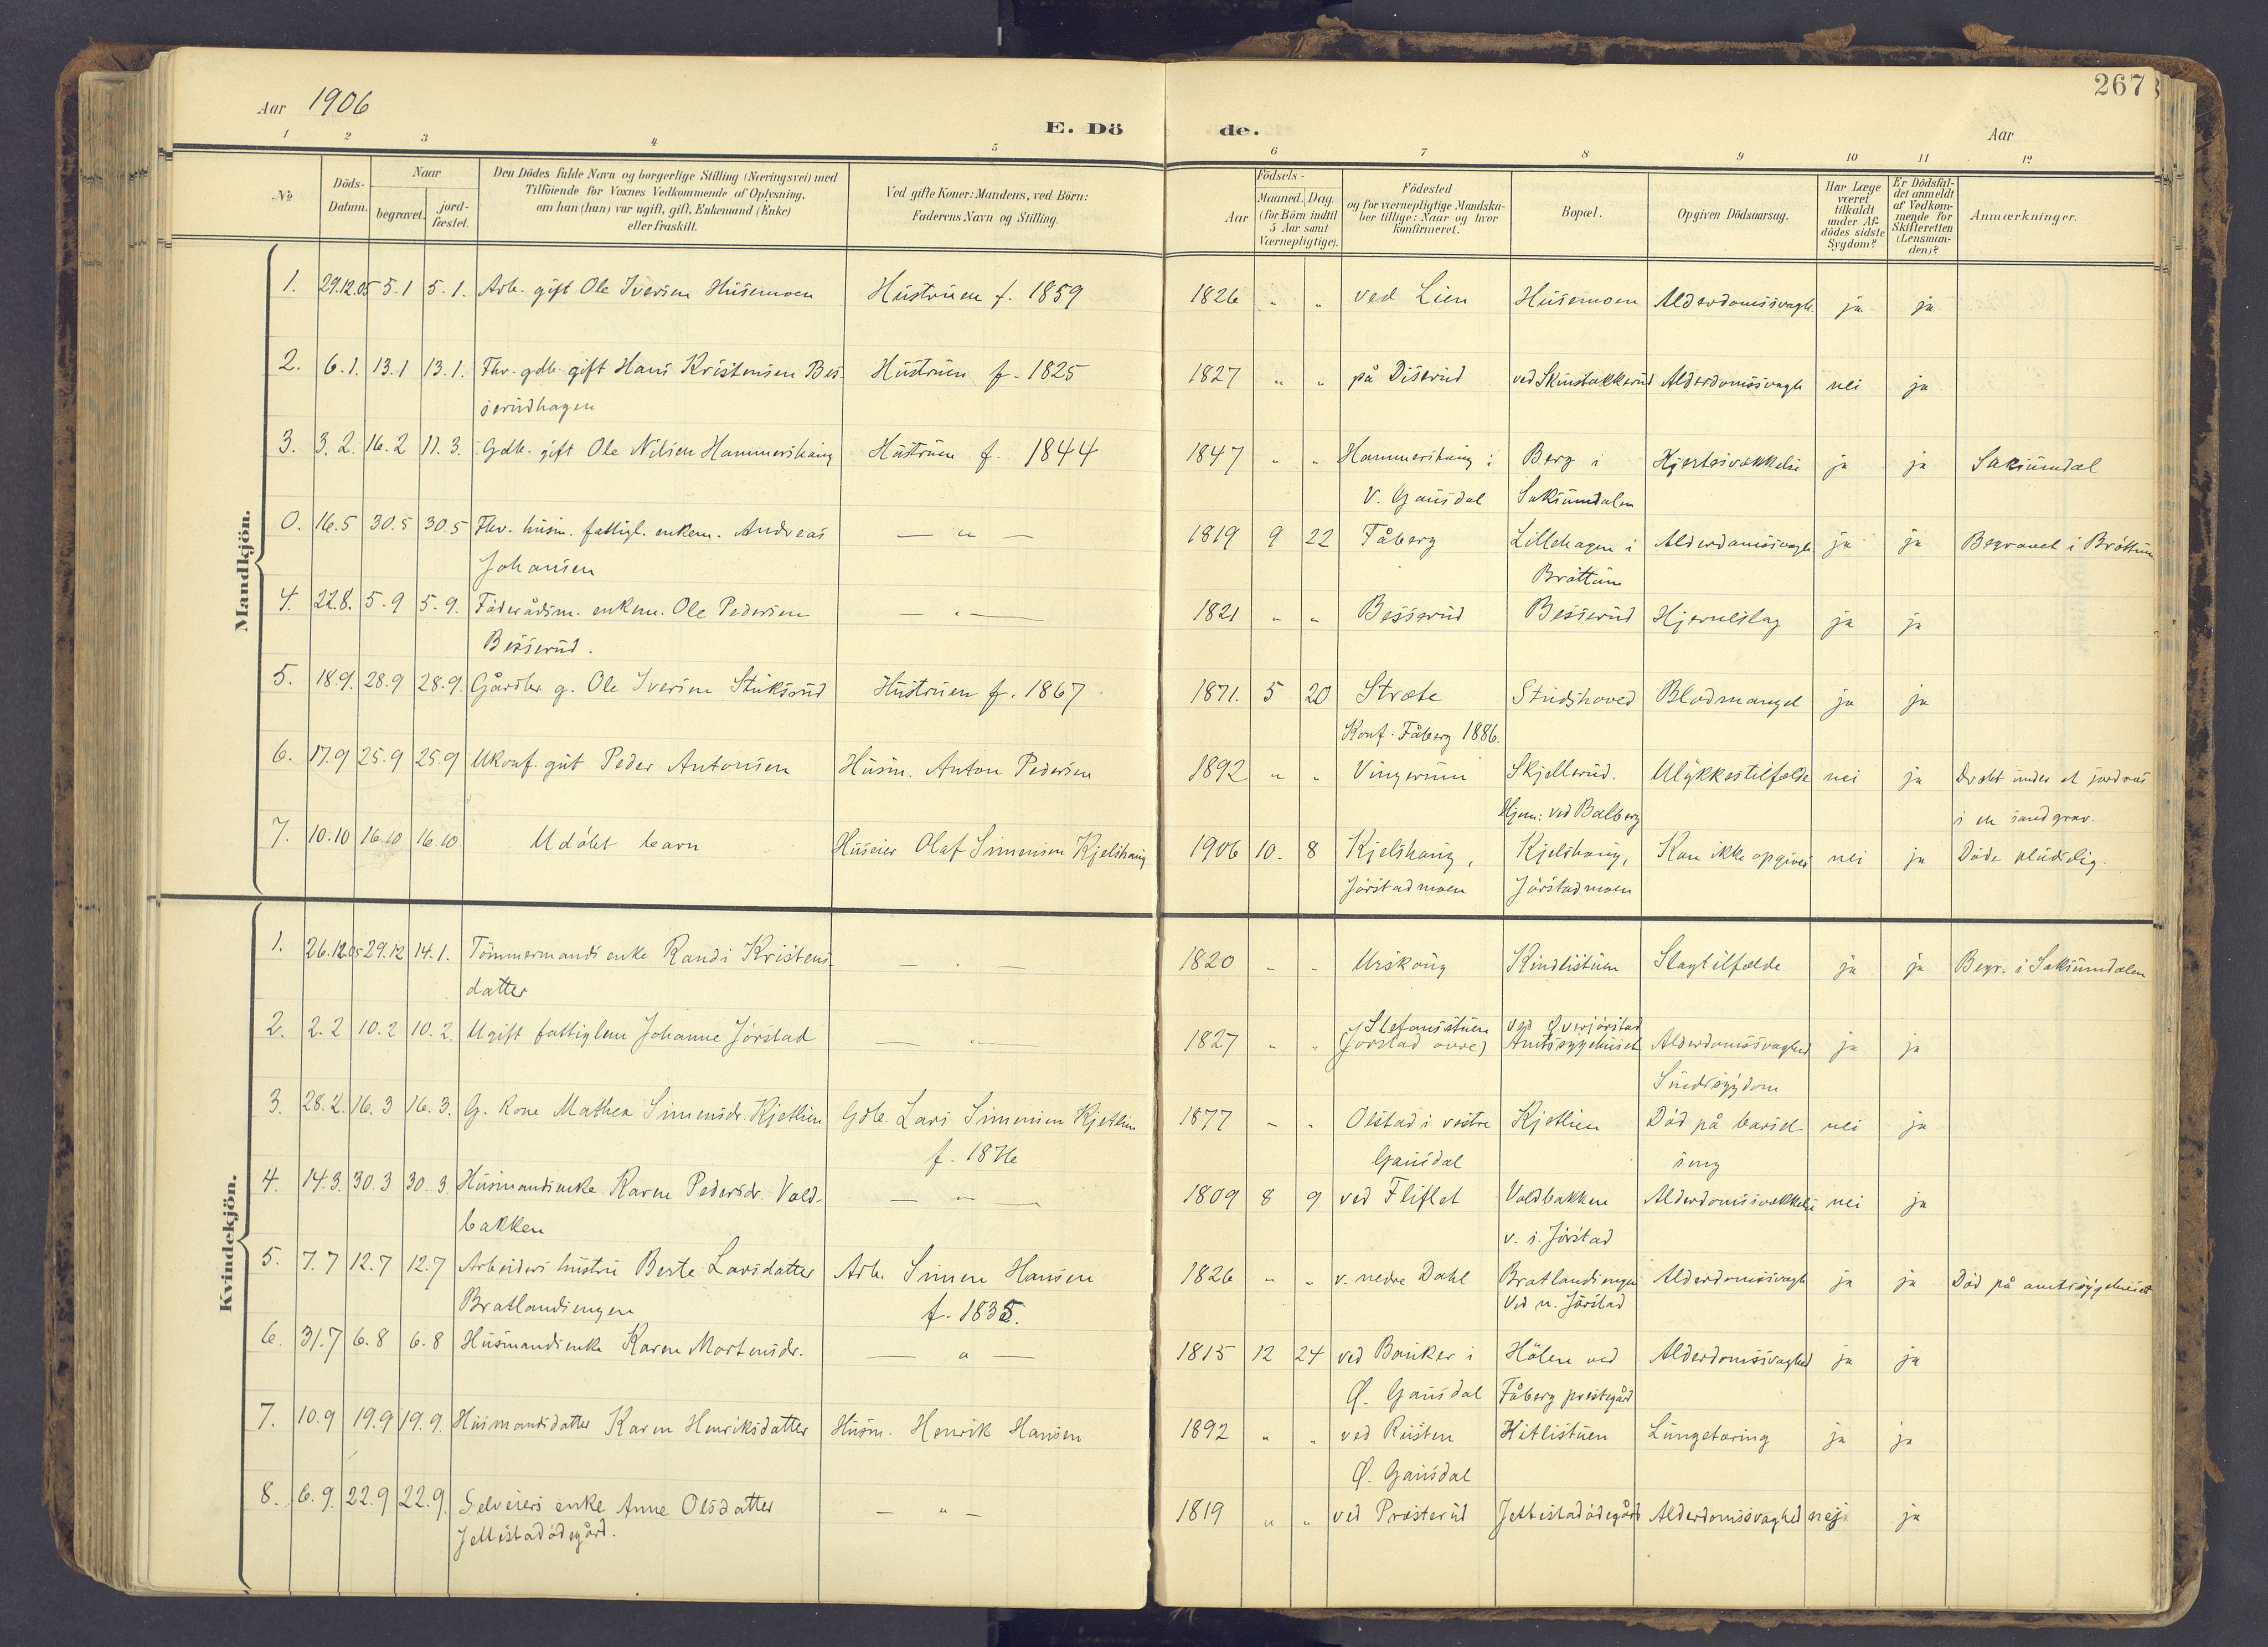 267
Aar 1906
E. Dö de.
Aar
1 2 3 4 5 6 7 8 9 10 11 12
No
Döds-
Datum.
Naar
begravet.
jord-
fæstet.
Den Dödes fulde Navn og borgerlige Stilling (Næringsvei) med
Tilföiende for Voxnes Vedkommende af Oplysning,
om han (hun) var ugift, gift, Enkemand (Enke)
eller fraskilt.
Ved gifte Koner: Mandens, ved Börn:
Faderens Navn og Stilling.
Födsels-
Aar
Maaned. Dag.
(for Börn indtil
5 Aar samt
Værnepligtige).
Födested
og for værnepligtige Mandska-
ber tillige: Naar og hvor
konfirmeret.
Bopæl.
Opgiven Dödsaarsag.
Har Læge
været
tilkaldt
under Af-
dödes sidste
Sygdom?
Er Dödsfal-
det anmeldt
af Vedkom-
mende for
Skifteretten
(Lensman-
den)?
Anmærkninger.
Mandkjön.
1. 29.12.05 5.1 5.1. Arb. gift Ole Iversen Husemoen Hustruen f. 1859 1826 " " ved Lien Husemoen Alderdomssvagh. ja ja
2. 6.1. 13.1 13.1. Fhv. gdb. gift Hans Kristensen Bes- Hustruen f. 1825 1827 " " på Diserud ved Skinstakkerud Alderdomssvagh nei ja
serudhagen
3. 3.2. 16.2 11.3. Gdb. gift Ole Nilsen Hammershaug Hustruen f. 1844 1847 " " Hammershaug i Berg i Hjertesvækkelse ja ja Saksumdal
V. Gausdal Saksumdalen
0. 16.5 30.5 30.5 Fhv. husm. fattigl. enkem. Andreas — " — 1819 9 22 Fåberg Lillehagen i Alderdomssvagh ja ja Begravet i Bröttum
Johansen Bröttum
4. 22.8. 5.9 5.9. Föderådsm. enkem. Ole Pedersen — " — 1821 " " Besserud Besserud Hjerneslag ja ja
Besserud.
5. 18.9. 28.9 28.9. Gårdbr. g. Ole Iversen Stuksrud Hustruen f. 1867 1871. 5 20 Stræte Studshoved Blodmangel ja ja
Konf. Fåberg 1886.
6. 17.9 25.9 25.9 Ukonf. gut Peder Antonsen Husm. Anton Pedersen 1892 " " Vingerum Skjellerud. Ulykkestilfælde nei ja Dræbt under et jordras
Hjem: ved Balberg i en sandgrav.
7. 10.10 16.10 16.10 Udöbt barn Huseier Olaf Simensen Kjelshaug 1906 10. 8 Kjelshaug, Kjelshaug, Kan ikke opgives nei ja Döde pludselig.
Jörstadmoen Jörstadmoen
Kvindekjön.
1. 26.12.05 29.12 14.1. Tömmermands enke Randi Kristens- — " — 1820 " " Urskoug Kindlistuen Slagtilfælde ja ja Begr. i Saksumdalen
datter
2. 2.2 10.2 10.2. Ugift fattiglem Johanne Jörstad — " — 1827 " " Stefansstuen ved Överjörstad
(Jörstad övre) Amtssygehuset Alderdomssvaghed ja ja
Sindssygdom
3. 28.2. 16.3 16.3. G. kone Mathea Simensdr. Kjetlien Gdb. Lars Simensen Kjetlien 1877 " " Olstad i vestre Kjetlien Död på barsel- nei ja
f. 1876 Gausdal seng
4. 14.3. 30.3 30.3. Husmandsenke Karen Pedersdr. Vold- — " — 1809 8 9 ved Fliflet Voldbakken Alderdomssvækkelse nei ja
bakken v. s. Jörstad
5. 7.7 12.7 12.7 Arbeiders hustru Berte Larsdatter Arb. Simen Hansen 1826 " " v. nedre Dahl Bratlandsengen Alderdomssvagh ja ja Död på amtssygehuset
Bratlandsengen f. 1835. Ved n. Jörstad
6. 31.7 6.8 6.8 Husmandsenke Karen Mortensdr. — " — 1815 12 24 ved Banker i Hölen ved Alderdomssvaghed ja ja
Ø. Gausdal Fåberg prestegård
7. 10.9 19.9 19.9. Husmandsdatter Karen Henriksdatter Husm. Henrik Hansen 1892 " " ved Rusten Kitlistuen Lungetæring ja ja
Ø. Gausdal
8. 6.9. 22.9 22.9. Selveiers enke Anne Olsdatter — " — 1819 " " ved Præsterud Jettestadödegård Alderdomssvaghed nej ja
Jettestadödegård.